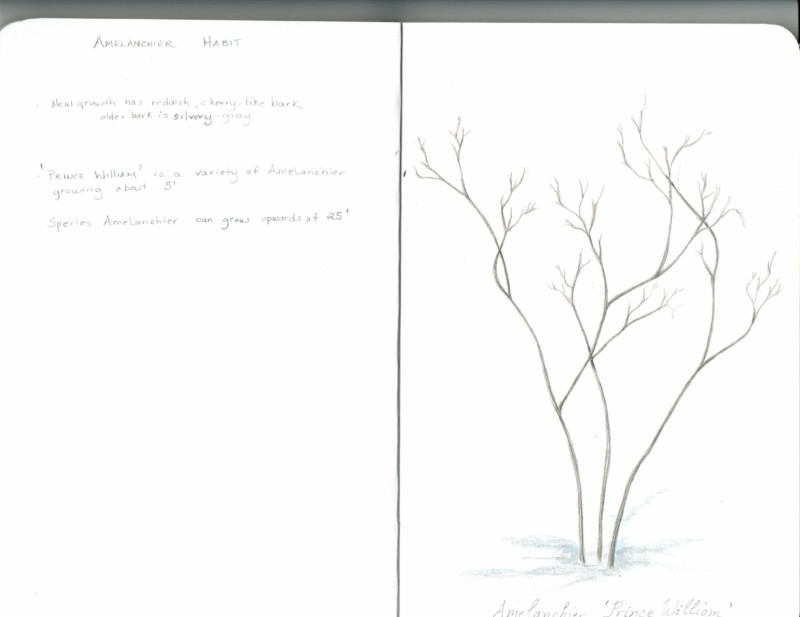 AMELANCHIER HABIT
· New growth has reddish, cherry-like bark,
older bark is silvery-gray
· 'PRINCE WILLIAM' is a variety of Amelanchier
growing about 5'
Species Amelanchier can grow upwards of 25'
Amelanchier 'Prince William'